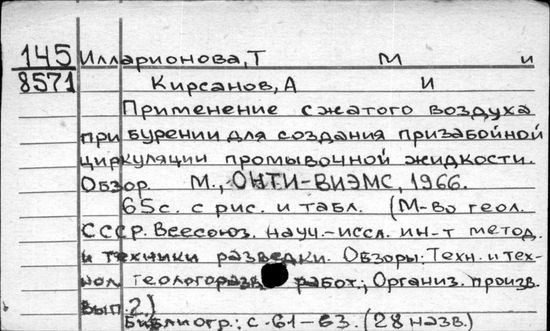 145 Илларионова, Т М и
8571 Кирсанов, А И
Применение сжатого воздуха
при бурении для создания призабойной
циркуляции промывочной жидкости.
Обзор М., ОНТИ-ВИЭМС, 1966.
65с. с рис. и табл. (М-во геол.
СССР. Всесоюз. науч.-иссл. ин-т метод.
и техники разведки. Обзоры: Техн. и тех-
нол геологоразв работ.; Организ. произв.
вып 2.)
Библиогр.: с. 61-63. (28 назв.)